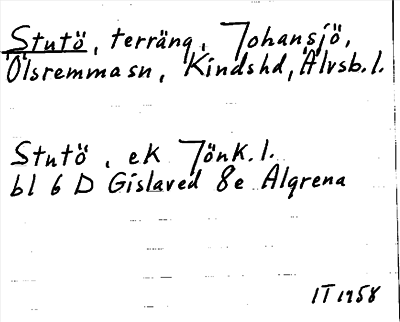 Stutö, terräng, Johansjö,
Ölsremma sn, Kindshd, Älvsb.l.
Stutö, ek Jönk.l.
bl 6 D Gislaved 8e Algrena
IT 1958